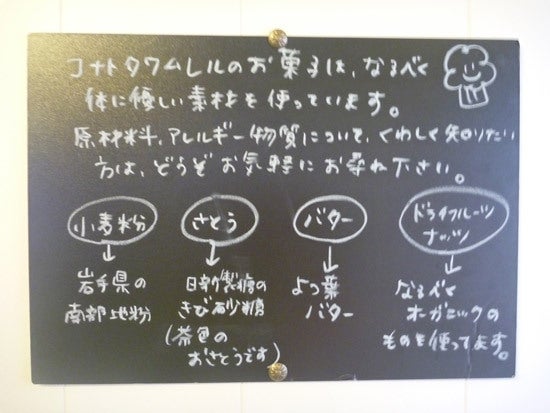 コナトタワムレルのお菓子は、なるべく
体に優しい素材を使っています。
原材料、アレルギー物質について、くわしく知りたい
方は、どうぞお気軽にお尋ね下さい。
小麦粉
↓
岩手県の
南部地粉
さとう
↓
日新製糖の
きび砂糖
(茶色の
おさとうです)
バター
↓
よつ葉
バター
ドライフルーツ
ナッツ
↓
なるべく
オーガニックの
ものを使ってます。